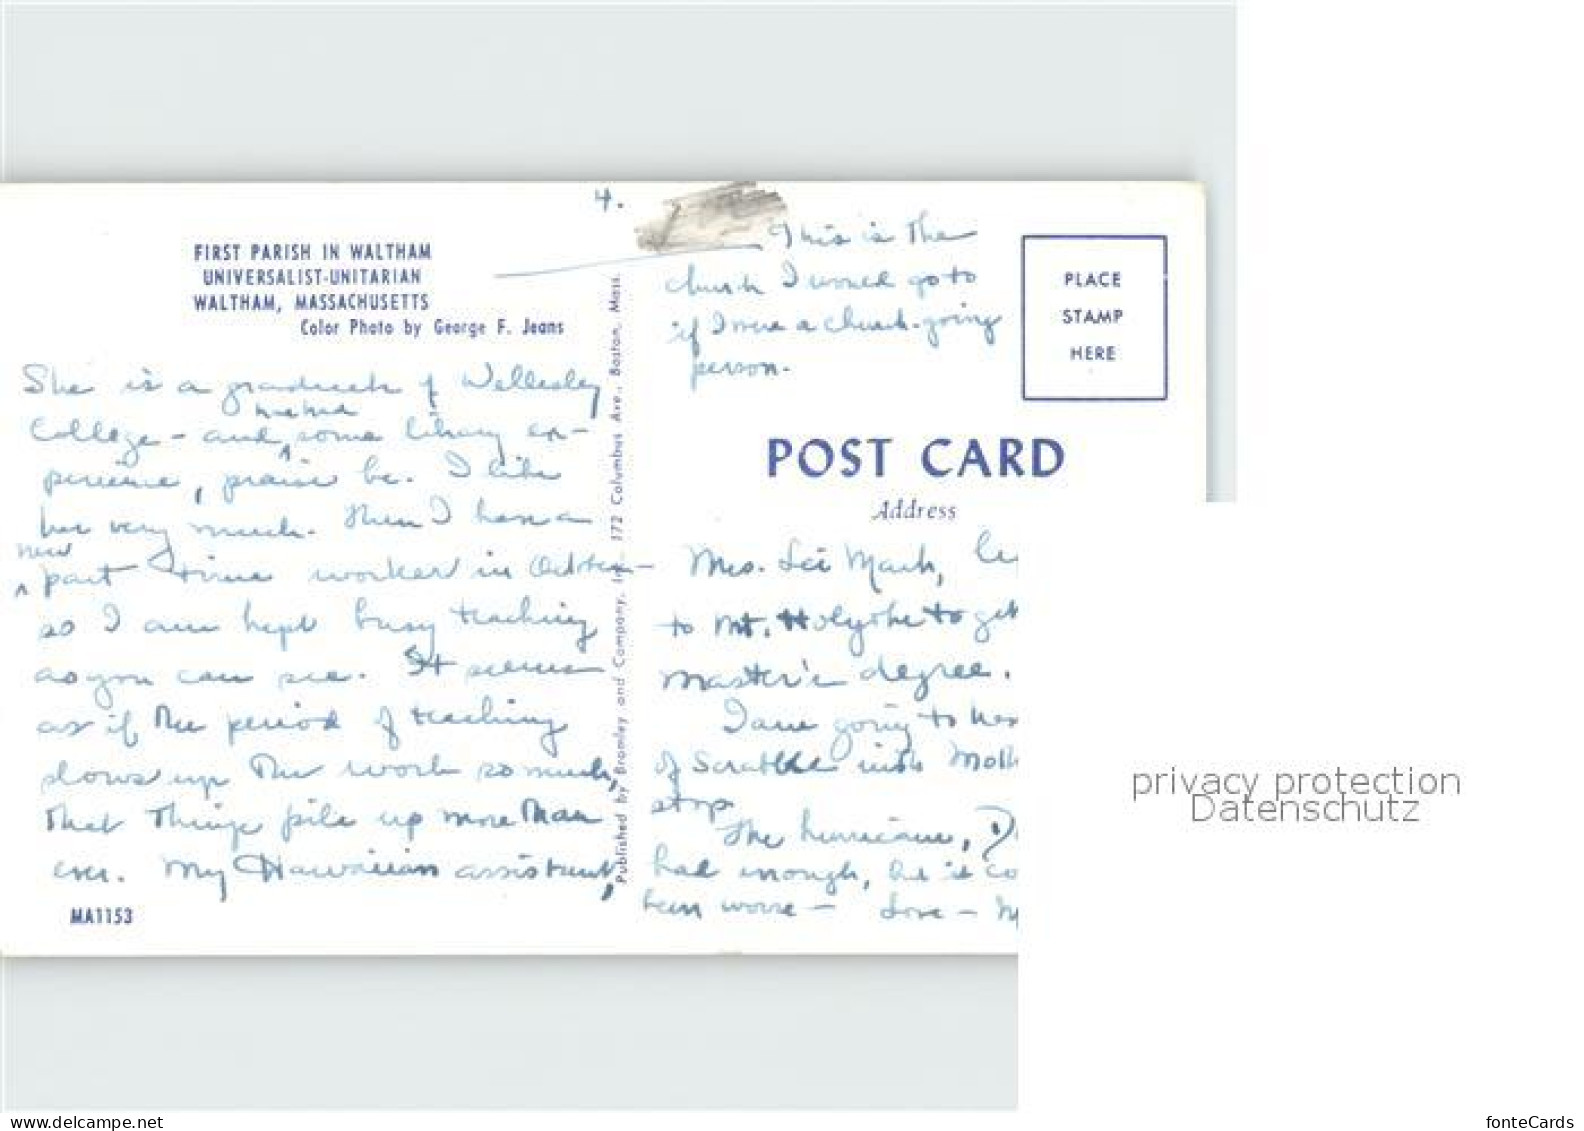 4.
FIRST PARISH IN WALTHAM
UNIVERSALIST-UNITARIAN
WALTHAM, MASSACHUSETTS
Color Photo by George F. Jeans
She is a graduate of Wellesley
College - and has had some library ex-
perience, praise be. I like
her very much. Then I have a
new part time worker in October
so I am kept busy teaching
as you can see. It seems
as if the period of teaching
slows up the work so much,
that things pile up more than
ever. My Hawaiian assistant,
MA1153
Published by Bromley and Company, Inc., 172 Columbus Ave., Boston, Mass.
This is the
church I would go to
if I were a church-going
person.
PLACE
STAMP
HERE
POST CARD
Address
Mrs. Mark,
to Mt. Holyoke to get
master's degree.
I am going to
of Scrabble with
stop
The hurricane,
had enough, it
been worse - Love -
privacy protection
Datenschutz
www.delcampe.net
fonteCards